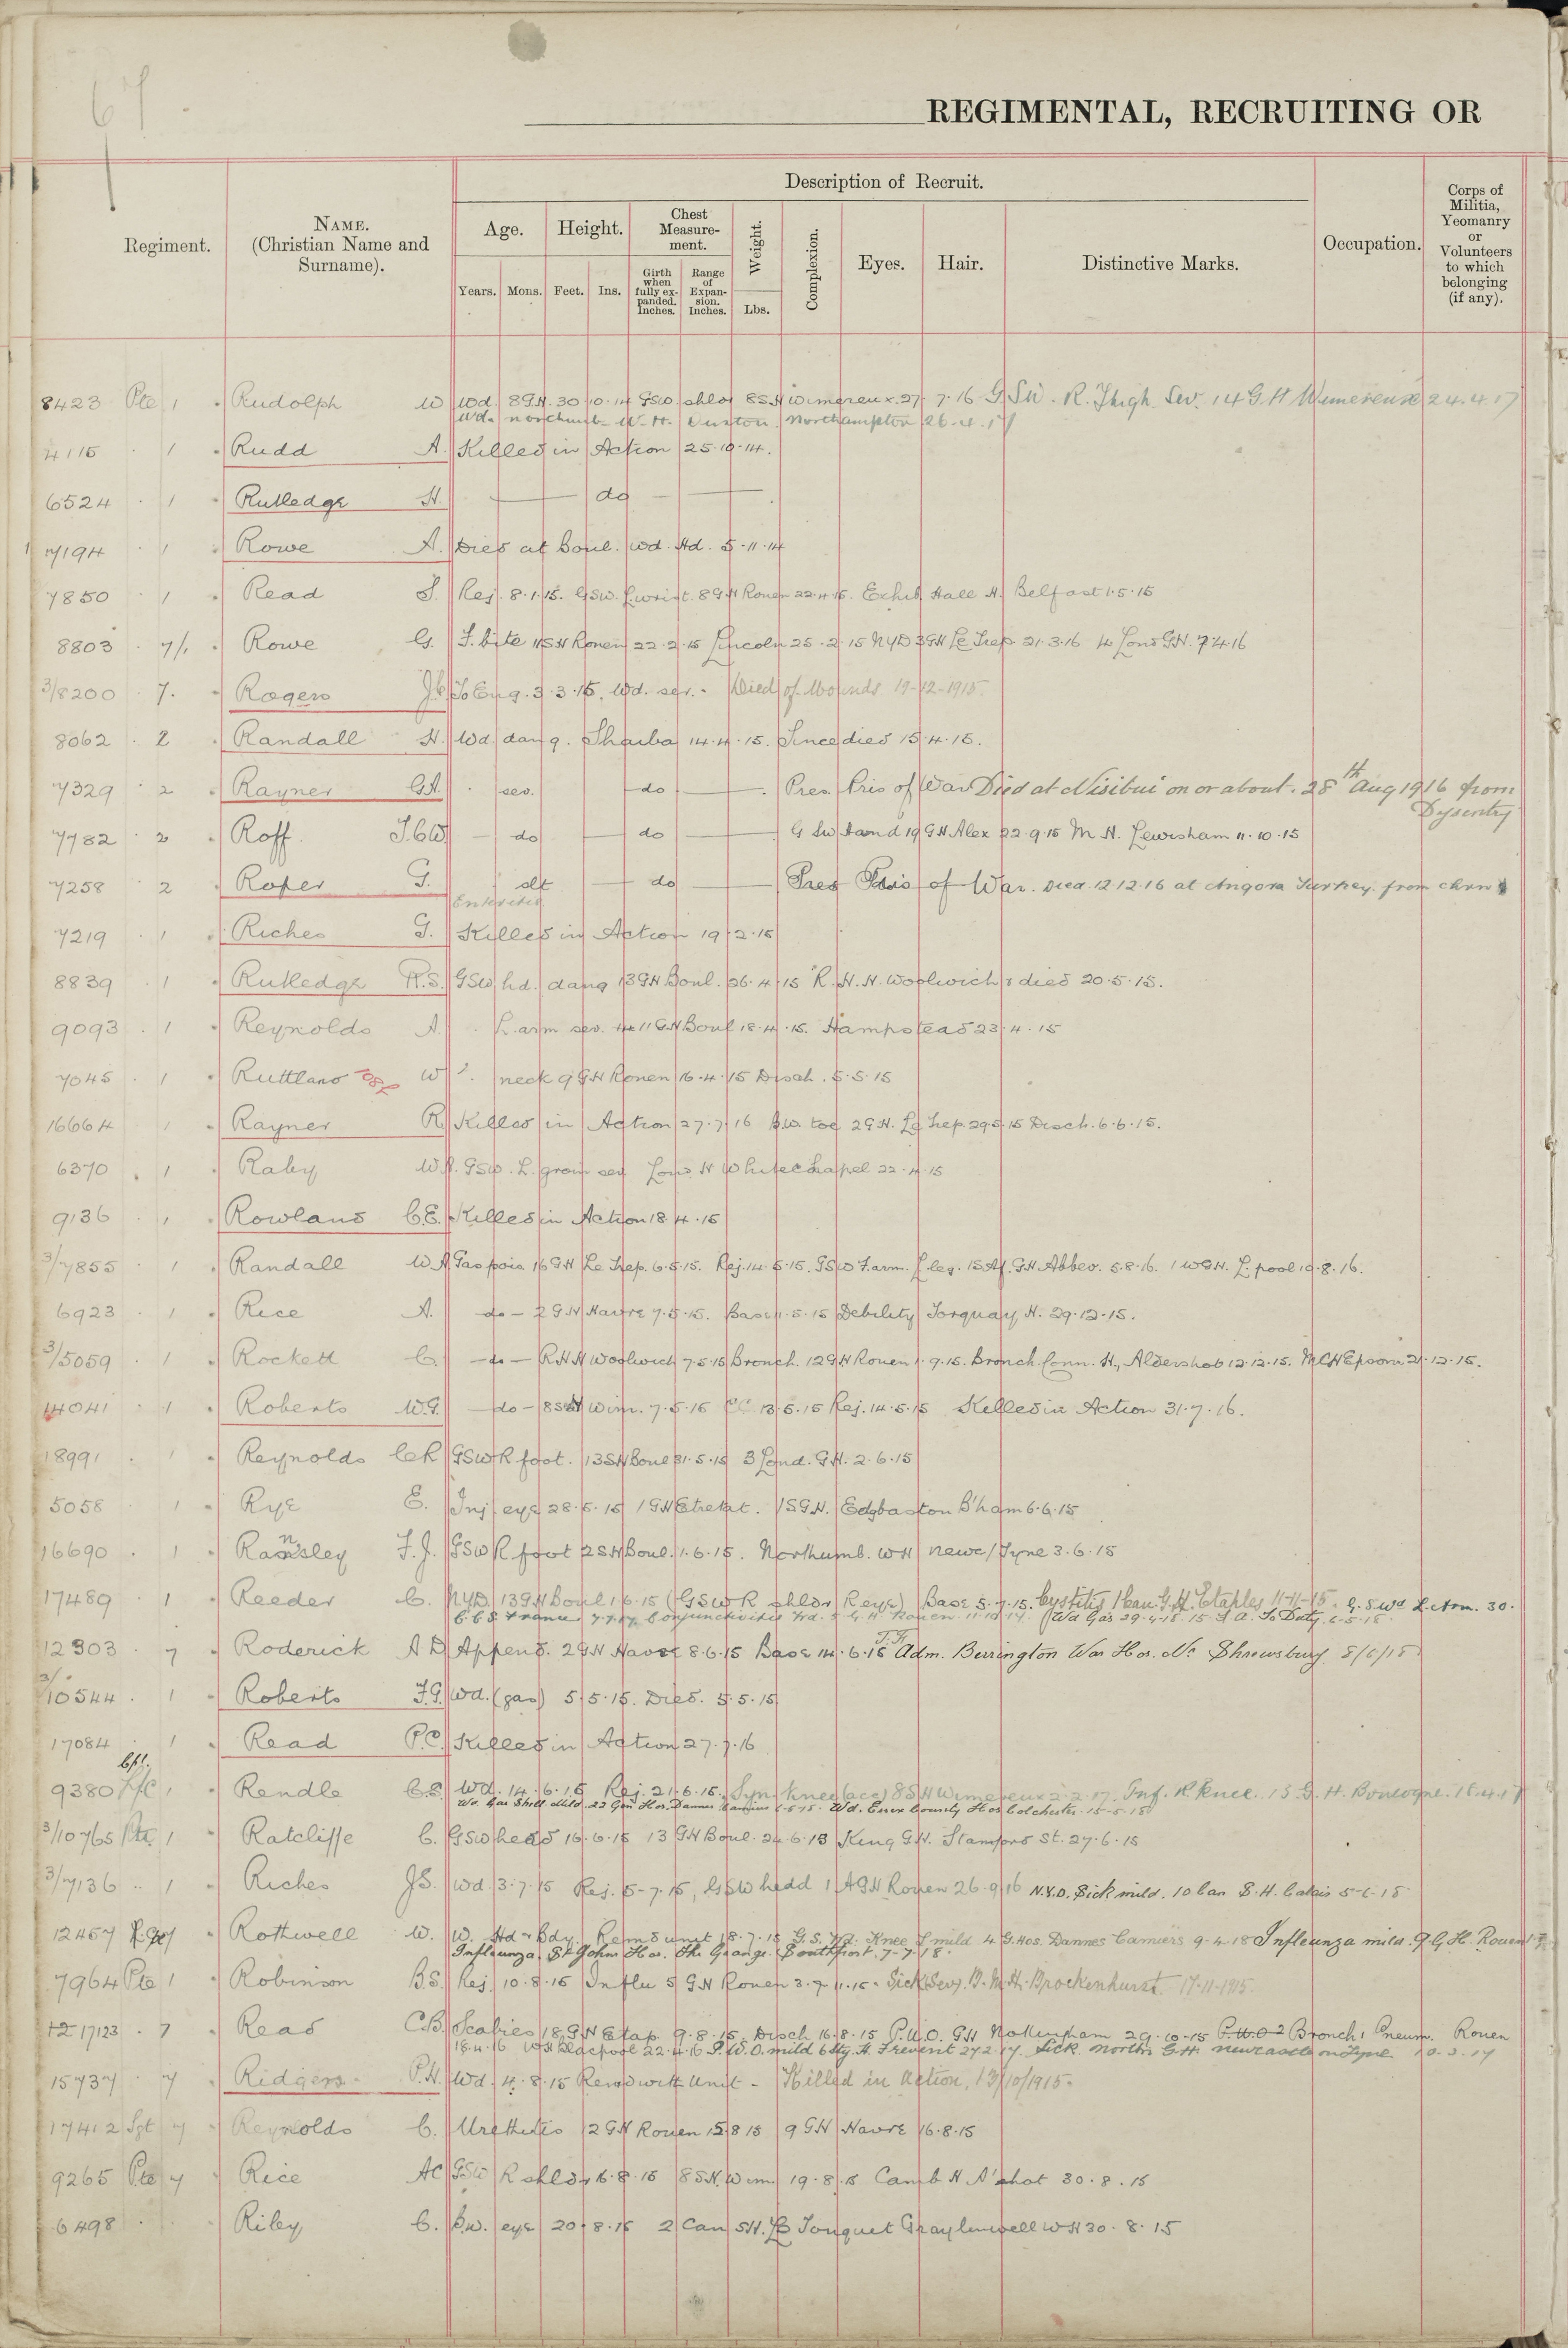 67
REGIMENTAL, RECRUITING OR
Regiment.
NAME.
(Christian Name and
Surname).
Description of Recruit.
Age.
Height.
Chest
Measure-
ment.
Weight.
Complexion.
Eyes.
Hair.
Distinctive Marks.
Occupation.
Corps of
Militia,
Yeomanry
or
Volunteers
to which
belonging
(if any).
Years.
Mons.
Feet.
Ins.
Girth
when
fully ex-
panded.
Inches.
Range
of
Expan-
sion.
Inches.
Lbs.
8423 Pte 1 Rudolph W Wd. 8 G.H. 30.10.14 GSW shldr 8 S H Wimereux 27.7.16 G.S.W. R. Thigh Sev. 14 G.H Wimereux 24.4.17
Wd. Northumb W.H. Duston Northampton 26.4.17
4116 1 Rudd A. Killed in Action 25.10.14.
6524 1 Rutledge H. do
7194 1 Rowe A. Died at Boul. Wd. Hd. 5.11.14
7850 1 Read S. Rej. 8.1.15. GSW. L wrist. 8 G H Rouen 22.4.15. Exhib Hall H. Belfast 1.5.15
8803 7/1 Rowe G. F. bite 11 S H Rouen 22.2.15 Lincoln 25.2.15 NYD 3 G H Le Trep. 21.3.16 4 Lond G H. 7.4.16
3/8200 7. Rogers To Eng. 3.3.15. Wd. sev. - Died of Wounds 19-12-1915.
8062 2 Randall H. Wd. dang. Shaiba 14.4.15. Since died 15.4.15.
7329 2 Rayner G.A. sev. do Pres. Pris of War Died at Nisibin on or about. 28th Aug 1916 from
Dysentry
7782 2 Roff J.C.W. do do G S W hand 19 G H Alex 22.9.15 M H. Lewisham 11.10.15
7258 2 Roper G. slt do Pres Pris of War. Died 12.12.16 at Angora Turkey. from chron
Enteritis
7219 1 Riches G. Killed in Action 19.2.15
8839 1 Rutledge R.S. GSW hd. dang 13 G H Boul. 26.4.15 R. H. H. Woolwich & died 20.5.15.
9093 1 Reynolds A. L. arm sev. 11 G H Boul 18.4.15. Hampstead 23.4.15
7045 1 Ruttland W neck 9 G H Rouen 16.4.15 Disch. 5.5.15
16664 1 Rayner R. Killed in Action 27.7.16 toe 2 G H. Le Trep. 29.5.15 Disch. 6.6.15.
6370 1 Raby W.A. GSW. L. groin sev Lond H Whitechapel 22.4.15
9136 1 Rowland C.E. Killed in Action 18.4.15
3/7855 1 Randall W A Gas pois 16 G H Le Trep. 6.5.15. Rej. 14.5.15. GSW F.arm. L leg. G H Abbev. 5.8.16. 1 W G H. L.pool 10.8.16.
6923 1 Rice A. do - 2 G H Havre 7.5.15. Base 11.5.15 Debility Torquay H. 29.12.15.
3/5059 1 Rockett C. do - R H H Woolwich 7.5.15 Bronch. 12 G H Rouen 1.9.15. Bronch Conn. H., Aldershot 12.12.15. M C H Epsom 21.12.15.
14041 1 Roberts W.G. do - 8 S H Wim. 7.5.15 13.5.15 Rej. 14.5.15 Killed in Action 31.7.16.
18991 1 Reynolds GSW R foot. 13 S H Boul 31.5.15 3 Lond. G.H. 2.6.15
5058 1 Rye E. Inj. eye 28.5.15 1 G H Etretat. 1 S G H. Edgbaston B'ham 6.6.15
16690 1 Ransley F.J. GSW R foot 2 S H Boul. 1.6.15. Northumb. W H Newc/Tyne 3.6.15
17489 1 Reeder C. NYD 13 G H Boul 1.6.15 (GSW R shldr R eye) Base 5.7.15. Cystitis 1 Can. G.H. Etaples 11-11-15. G.S.Wd L. Arm. 30.
C.C.S. France 7.7.17. Conjunctivitis Wd. 5 G H Rouen 11.10.17. (Wd Gas 29.4.18. 15 F A. To Duty. 6-5-18
12303 7 Roderick A D Append. 2 G H Havre 8.6.15 Base 14.6.15 T.F. Adm. Berrington War Hos. Nr Shrewsbury 8/6/18
3/10544 1 Roberts F.G. Wd. (gas) 5.5.15. Died. 5.5.15
17084 1 Read P.C. Killed in Action 27.7.16
Cpl.
9380 L/C 1 Rendle C.S. Wd. 14.6.15 Rej. 21.6.15. Syn. Knee (acc) 8 S H Wimereux 2.2.17. Inf. R Knee. 13 G. H. Boulogne. 16.4.17
Wd. Gas Shell Mild. 22 Gen Hos. Dannes Camiers 6-5-18. Wd. Essex County Hos Colchester. 15-5-18
3/10765 Pte 1 Ratcliffe C. GSW head 16.6.15 13 G H Boul. 24.6.15 King G H. Stamford St. 27.6.15
3/7136 1 Riches J.S. Wd. 3.7.15 Rej. 5-7.15, GSW head 1 A G H Rouen 26.9.16 N.Y.D. Sick mild. 10 Can S. H. Calais 5-6-18
12457 Rothwell W. W. Hd & Bdy. Remd unit 18.7.15 G.S.Wd. Knee L mild 4 G. Hos. Dannes Camiers 9-4-18 Influenza mild. 9 G. H. Rouen
Influenza St Johns Hos. The Grange Southport. 7-7-18.
7964 Pte 1 Robinson B.S. Rej. 10.8.15 Influ 5 G H Rouen 3.11.15. Sick Sev. B. M. H. Brockenhurst 17.11.1915.
17123 7 Read C.B. Scabies 18 G H Etap. 9.8.15. Disch 16.8.15 P.U.O. G H Nottingham 29.10.15 P.U.O. 2 Bronch. Pneum. Rouen
18.4.16 W H Blackpool 22.4.16 P.U.O. mild 6 Sty. H. Frevent 27.2.17. Sick North'n G H Newcastle on Tyne 10.3.17
15737 7 Ridgers P.H. Wd. 4.8.15 Remd with Unit - Killed in action, 13/10/1915.
17412 Sgt 7 Reynolds C. Urethritis 12 G H Rouen 15.8.15 9 G H Havre 16.8.15
9265 Pte 7 Rice AC GSW R shldr 16.8.15 8 S H Wim 19.8.15 Camb H A'shot 30.8.15
6498 Riley C. B.w. eye 20.8.15 2 Can S H. Le Touquet Graylingwell W H 30.8.15